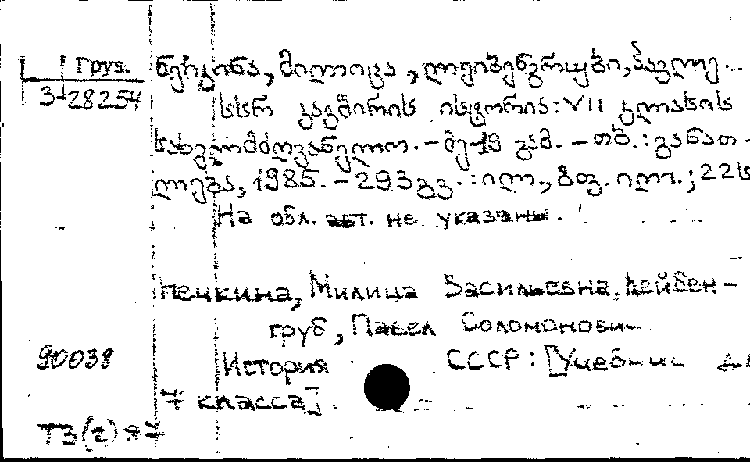 Груз. ნეჩკინა, მილიცა, ლეიბენგრუბი, პავლე..
3-28254 სსრ კავშირის ისტორია: VII კლასის
სახელმძღვანელო. - მე-19 გამ. - თბ.: განათ-
ლება, 1985. - 293 გვ.: ილ., 8 ფ. ილ.; 22 ს
На обл. авт. не указаны.
Нечкина, Милица Васильевна, Лейбен-
груб, Павел Соломонович
90038 История СССР: [Учебник
7 класса].